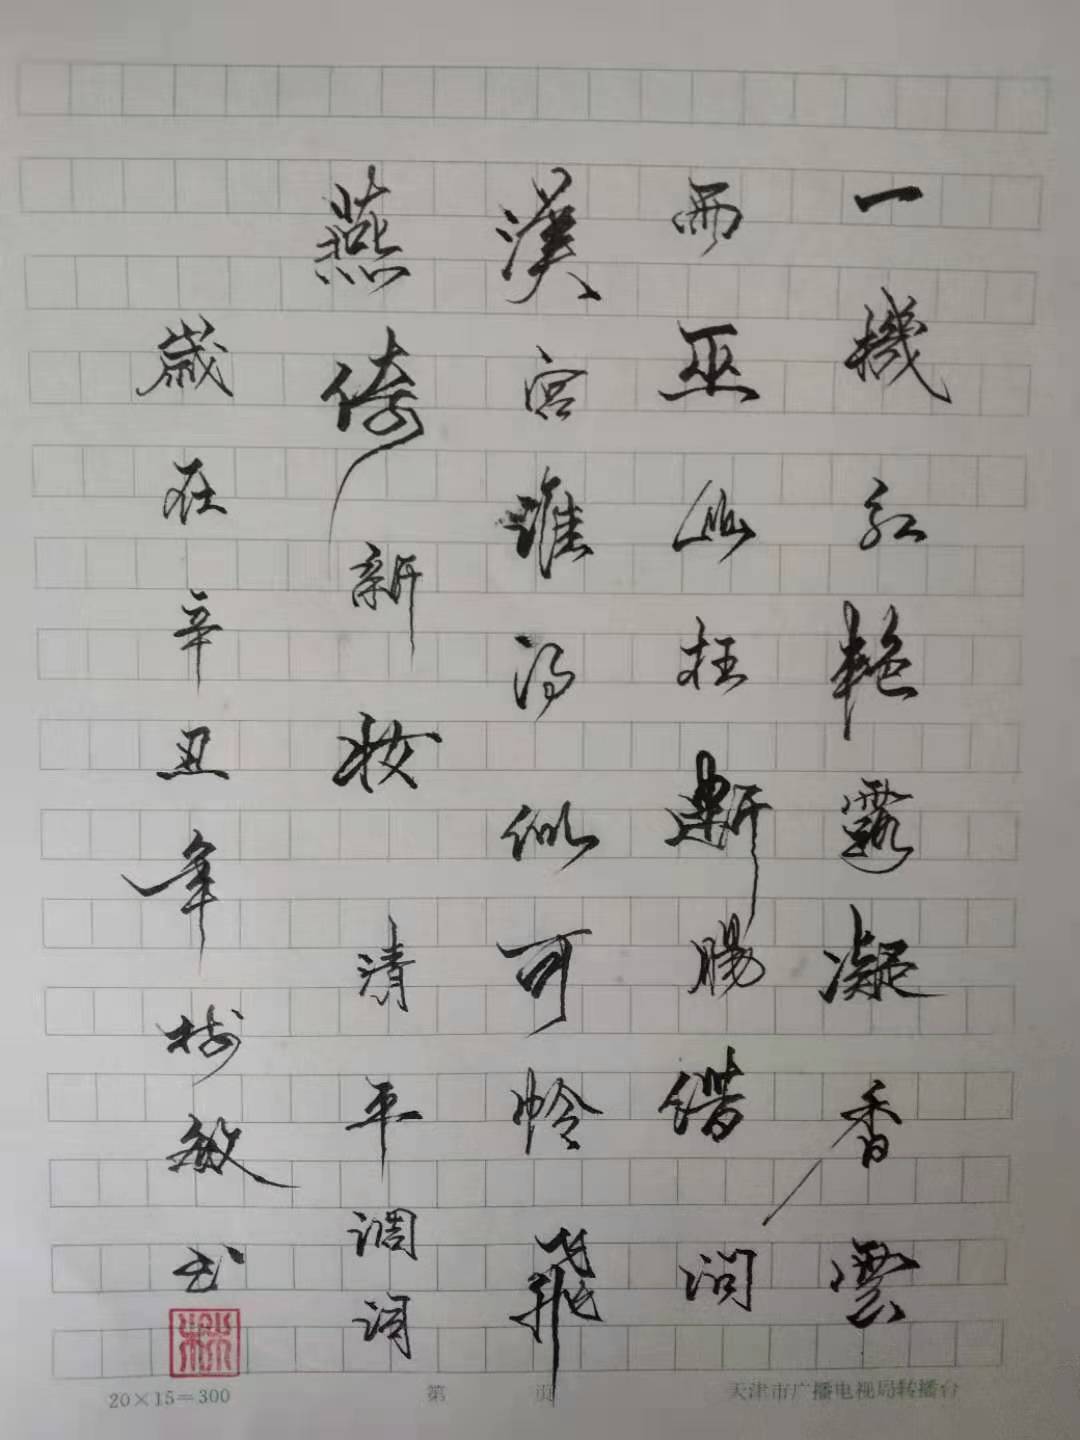 一機红艳露凝香雲
雨巫山枉斷腸借問
漢宫誰得似可怜飛
燕倚新妆 清平調词
歲在辛丑年树敏书
20×15=300 第 页 天津市广播电视局转播台